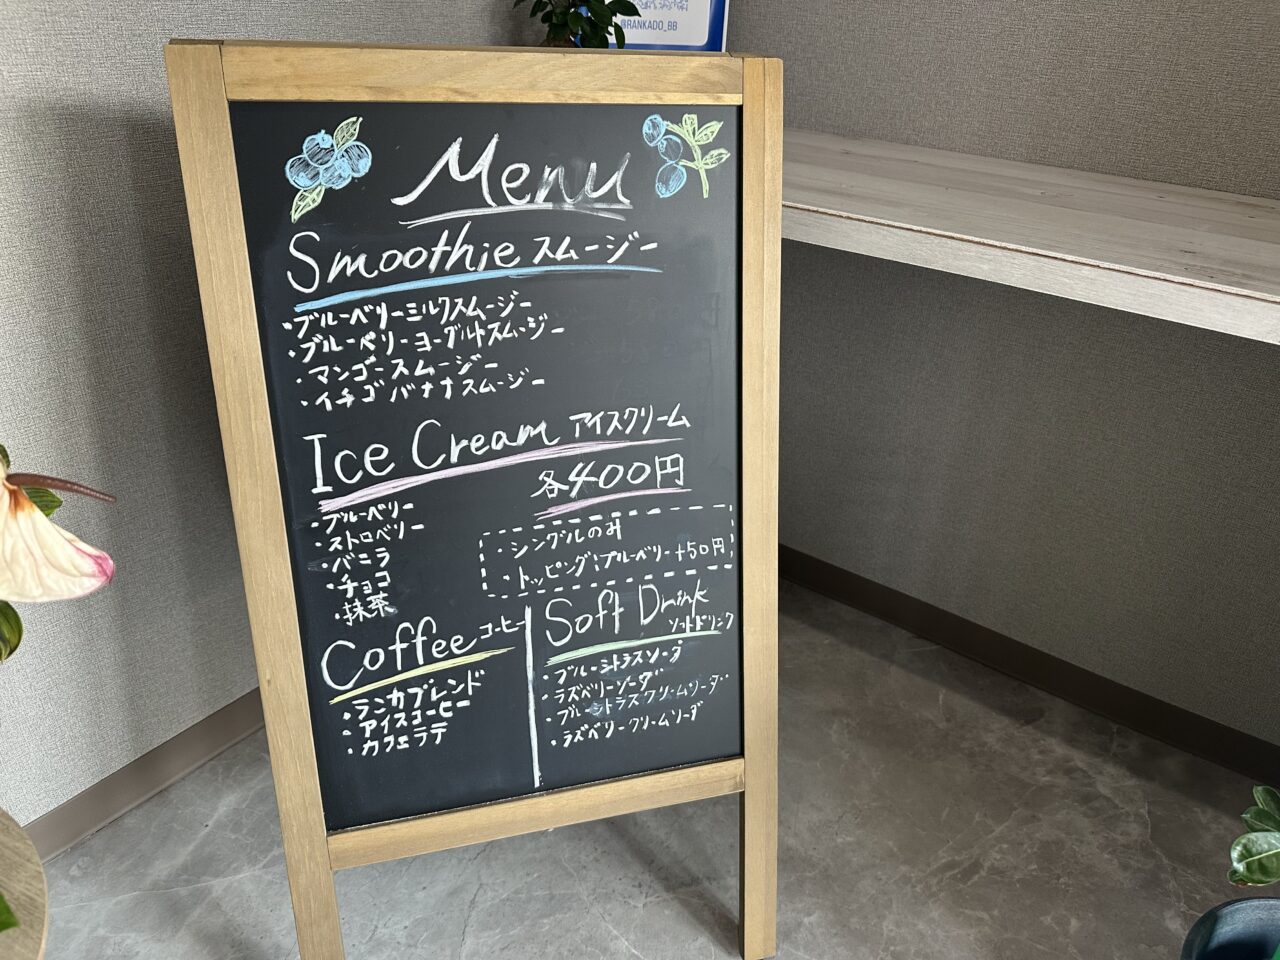 @RANKADO_BB
Menu
Smoothie スムージー
・ブルーベリーミルクスムージー
・ブルーベリーヨーグルトスムージー
・マンゴースムージー
・イチゴバナナスムージー
Ice Cream アイスクリーム
各400円
・ブルーベリー
・ストロベリー
・バニラ
・チョコ
・抹茶
・シングルのみ
・トッピング:ブルーベリー+50円
Coffee コーヒー
・ランカブレンド
・アイスコーヒー
・カフェラテ
Soft Drink
ソフトドリンク
・ブルーシトラスソーダ
・ラズベリーソーダ
・ブルーシトラスクリームソーダ
・ラズベリークリームソーダ